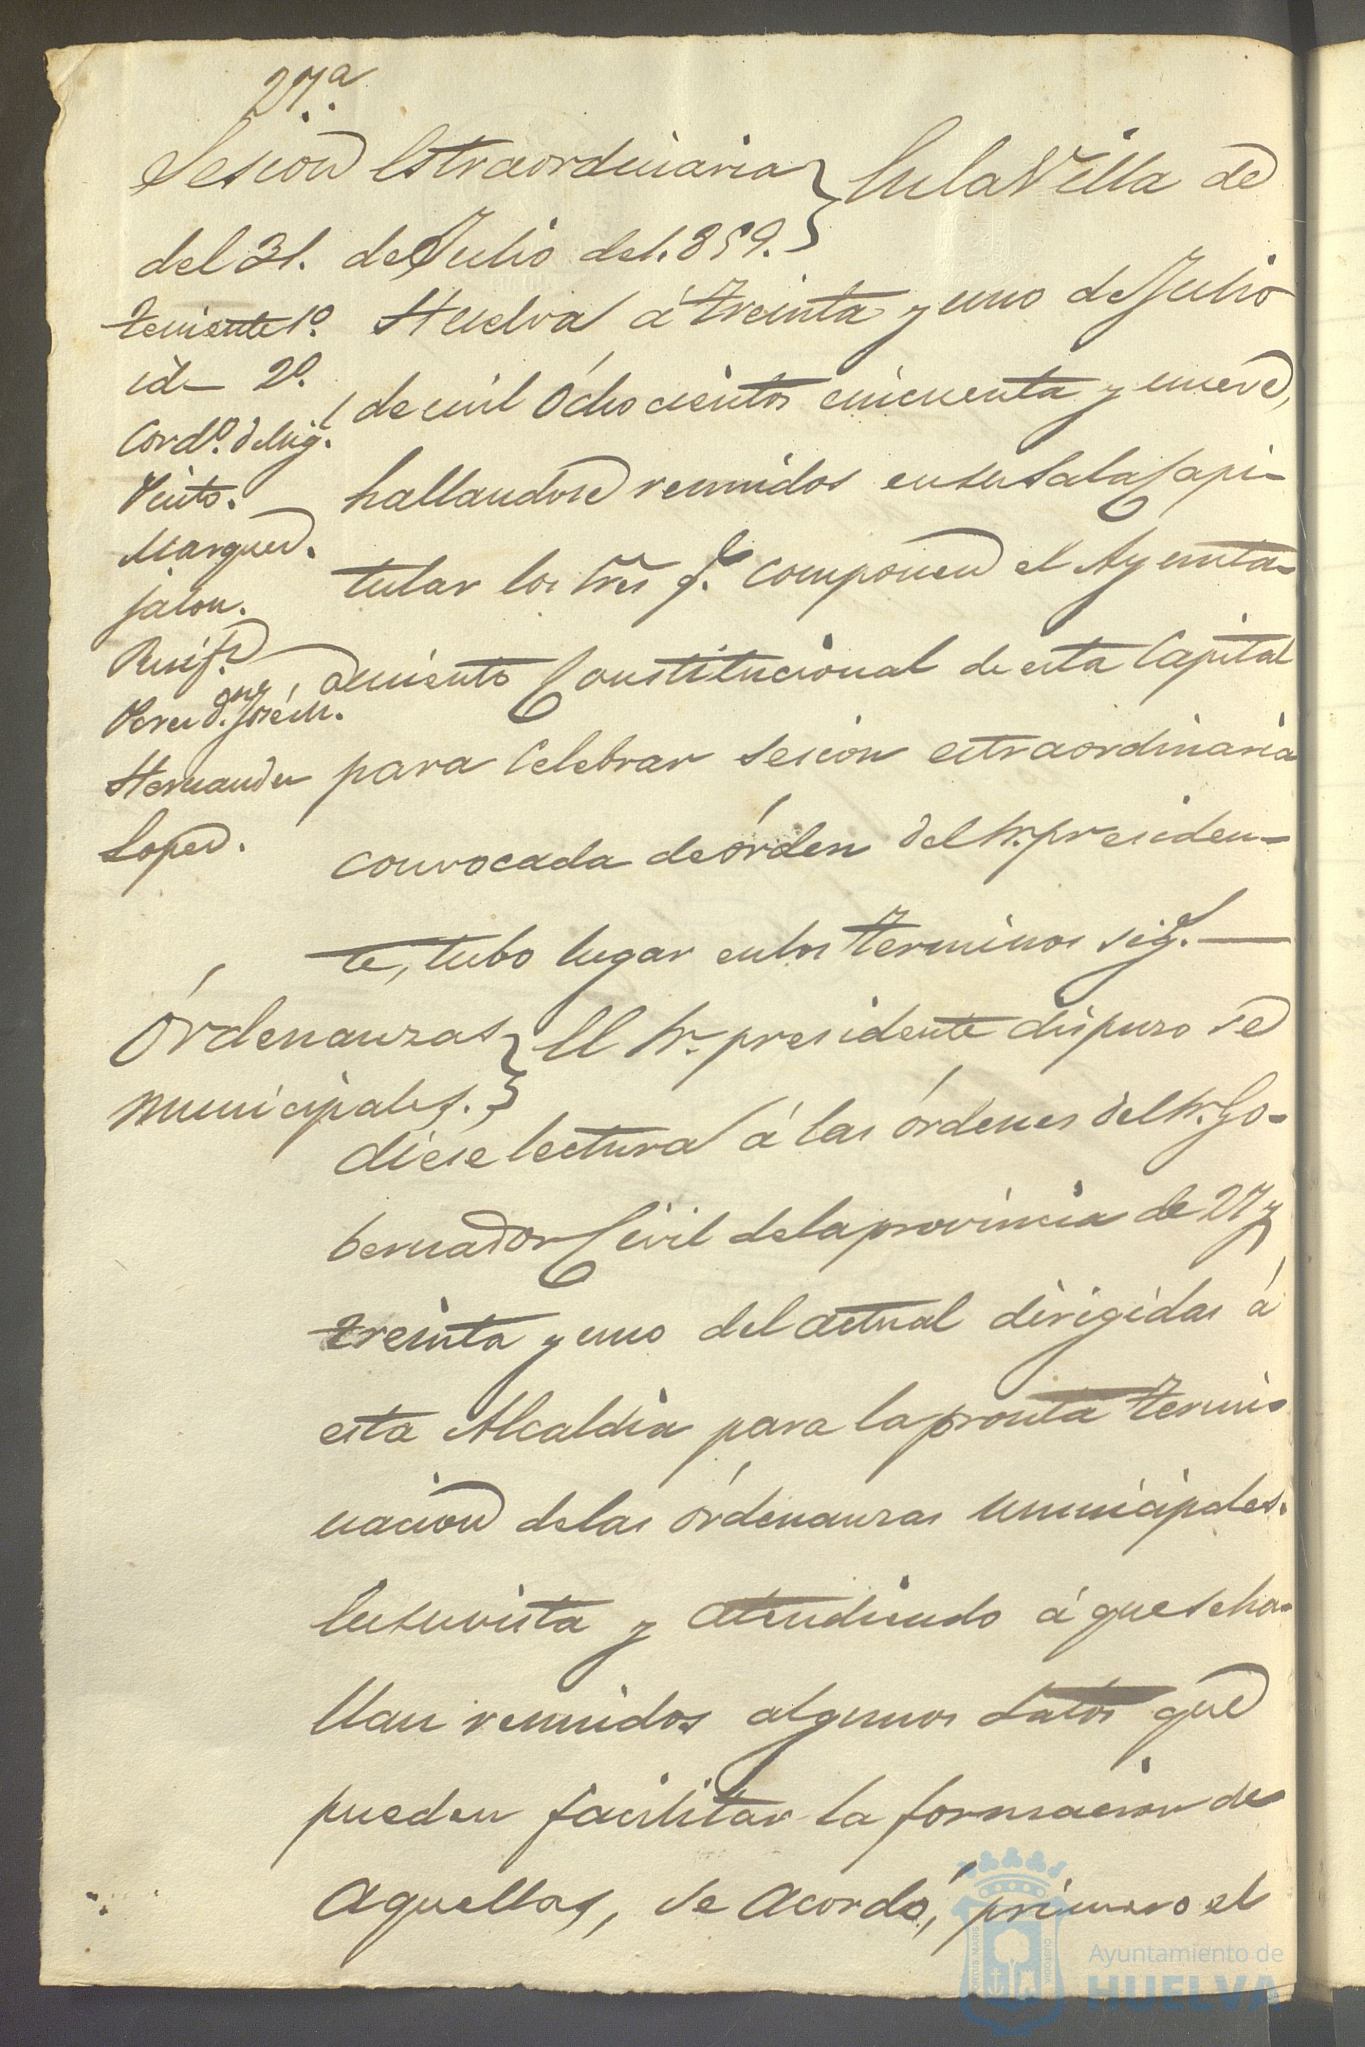 27.ª
Sesion Estraordinaria
del 31. de Julio de 1.859.
En la Villa de
Teniente 1º.
id- 2º.
Cord.º Sindig.
Pinto.
Marquez.
Jalon.
Perez d.n José M.
Hernandez
Lopez.
Huelva á treinta y uno de Julio
de mil ochocientos cincuenta y nueve,
hallandose reunidos en su Sala Capi-
tular los Sres q.e componen el Ayunta-
miento Constitucional de esta Capital
para Celebrar sesion estraordinaria
convocada de órden del Sr. presiden-
te, tubo lugar en los terminos sig.s —
Órdenanzas
municipales.
El Sr. presidente dispuso se
diese lectura á las órdenes del Sr. Go-
bernador Civil de la provincia de 27 y
treinta y uno del actual dirigidas á
esta Alcaldia para la pronta termi-
nacion de las órdenanzas municipales.
En su vista y atendiendo á que se ha-
llan reunidos algunos datos que
pueden facilitar la formacion de
aquellas, se acordó, primero el
Ayuntamiento de
HUELVA